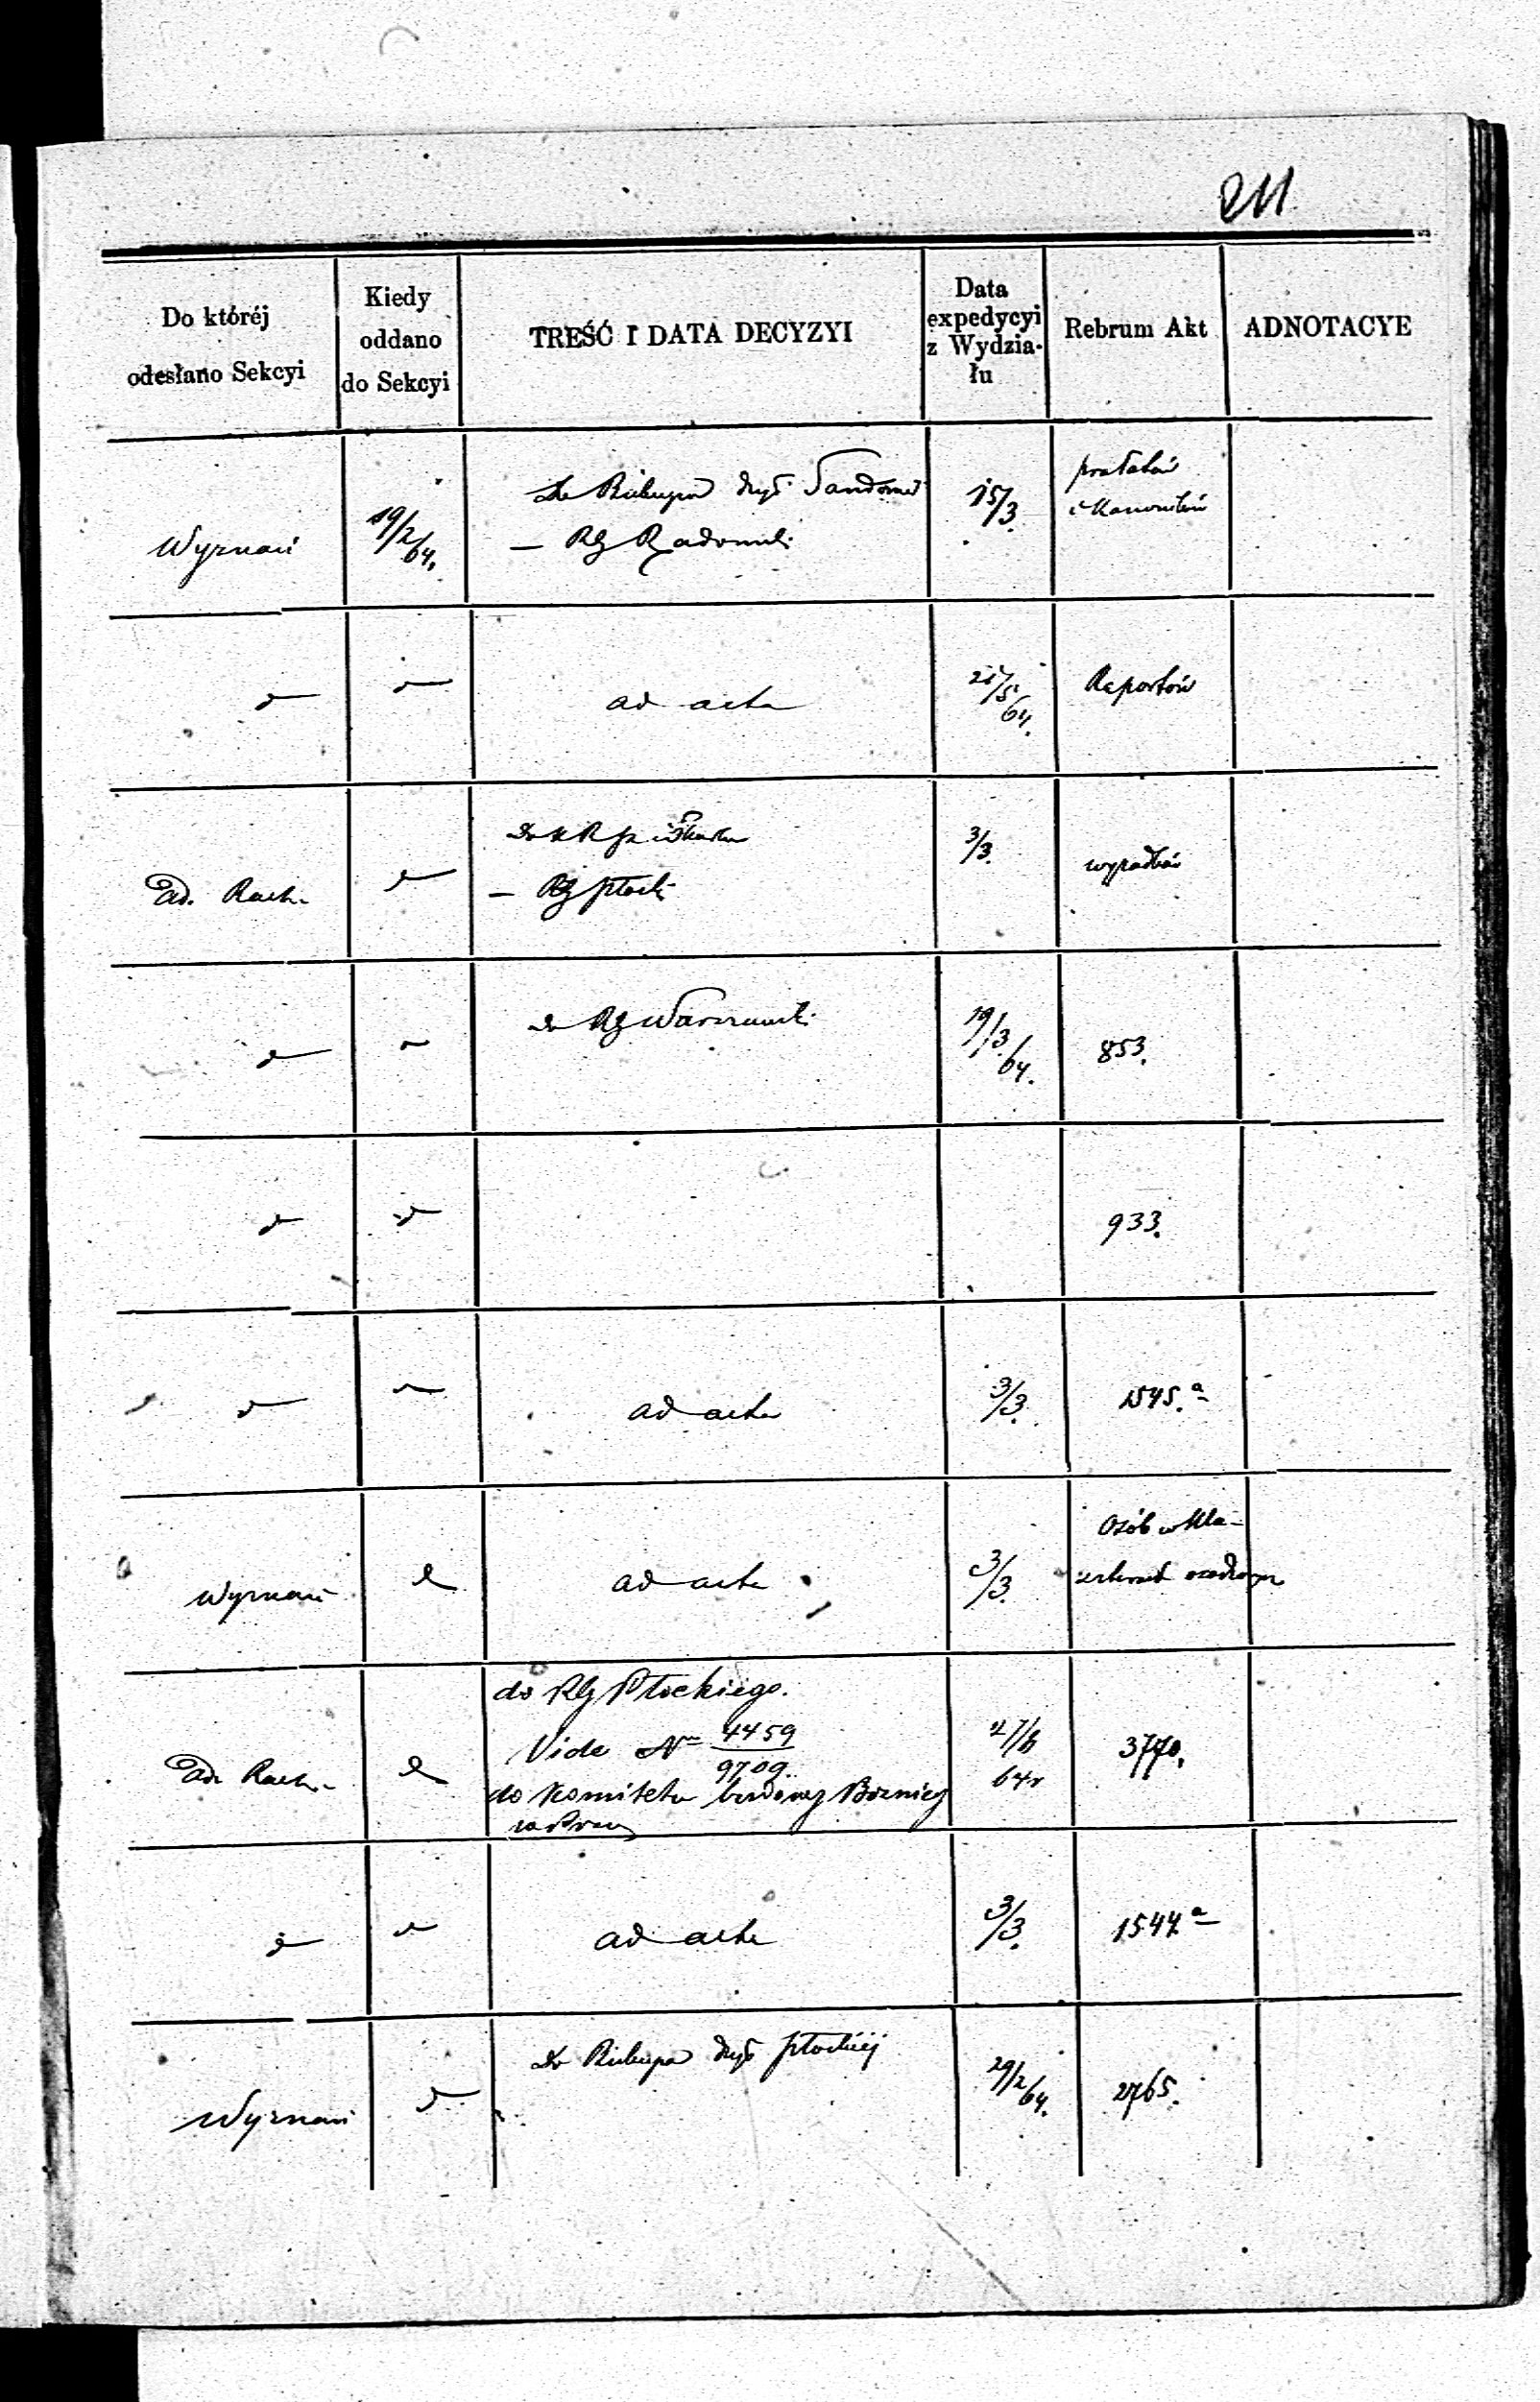 211
Do któréj
odesłano Sekcyi
Kiedy
oddano
do Sekcyi
TREŚĆ I DATA DECYZYI
Data
expedycyi
z Wydzia-
łu
Rebrum Akt
ADNOTACYE
Wyznań
19/2/64.
Do Biskupa dyć Sandomier
— RG Radomski
15/3.
prałatów
i Kanoników
d
d
ad acta
21/5/64.
Raportów
Ad. Rach.
d
— RG płocki
3/3.
wypadków
d
d
do RG Warszawski
19/3/64.
853.
d
d
933.
d
d
ad acta
3/3.
1545.a
Wyznań
d
ad acta
3/3.
Osób w Kla-
Ad. Rach.
d
do RG Płockiego.
Vide Nr 4459
9709.
do Komitetu budowy Bożnicy
27/6
64r
3770.
d
d
ad acta
3/3.
1547.a
Wyznań
d
Do Biskupa dyć płockiéj
29/2/64.
2765.